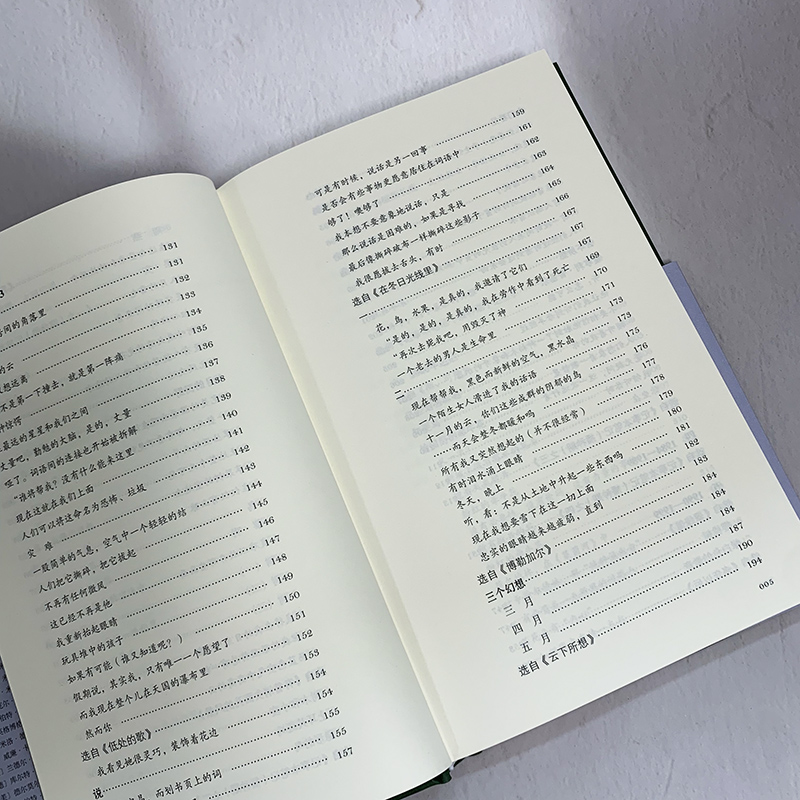 3 131
131
132
居间的角落里 133
的云 134
想远离 135
不是第一下撞击，就是第一阵痛 136
种惊愕 137
最远的星星和我们之间 138
丈量吧，勤勉的大脑，是的，丈量 139
哑了。词语间的连接也开始被拆解 140
谁将帮我？没有什么能来这里 141
现在这就在我们上面 142
人们可以将这命名为恐怖、垃圾 143
灾 难 144
一股简单的气息，空气中一个轻轻的结 145
人们把它撕碎，把它拔起 146
不再有任何微风 147
这已经不再是他 148
我重新抬起眼睛 149
玩具堆中的孩子 150
如果有可能（谁又知道呢？） 151
假期说，其实我，只有唯一一个愿望了 152
而我现在整个儿在天国的瀑布里 154
然而你 154
选自《低处的歌》
我看见她很灵巧，装饰着花边 155
说 155
易，而划书页上的词 157
可是有时候，说话是另一回事 159
是否会有些事物更愿意居住在词语中 161
够了！噢够了 162
我本想不要意象地说话，只是 163
那么说话是困难的，如果是寻找 164
最后像撕碎破布一样撕碎这些影子 165
我很愿拔去舌头，有时 166
选自《在冬日光线里》
一 167
花，鸟，水果，是真的，我邀请了它们 167
“是的，是的，是真的，我在劳作中看到了死亡 169
“再次去毗我吧，用毁灭了神 170
一个老去的男人是生命里 171
二 173
现在帮帮我，黑色而新鲜的空气，黑水晶 173
一个陌生女人潜进了我的话语 175
十一月的云，你们这些成群的阴郁的鸟 176
……而天会整冬都暖和吗 177
所有我又突然想起的（并不很经常） 178
有时泪水涌上眼睛 179
冬天，晚上 180
听，看：不是从土地中升起一些东西吗 181
现在我想要雪下在这一切上面 182
忠实的眼睛越来越疲弱，直到 183
选自《博勒加尔》
三个幻想 184
三 月 187
四 月 190
五 月 194
选自《云下所想》
005